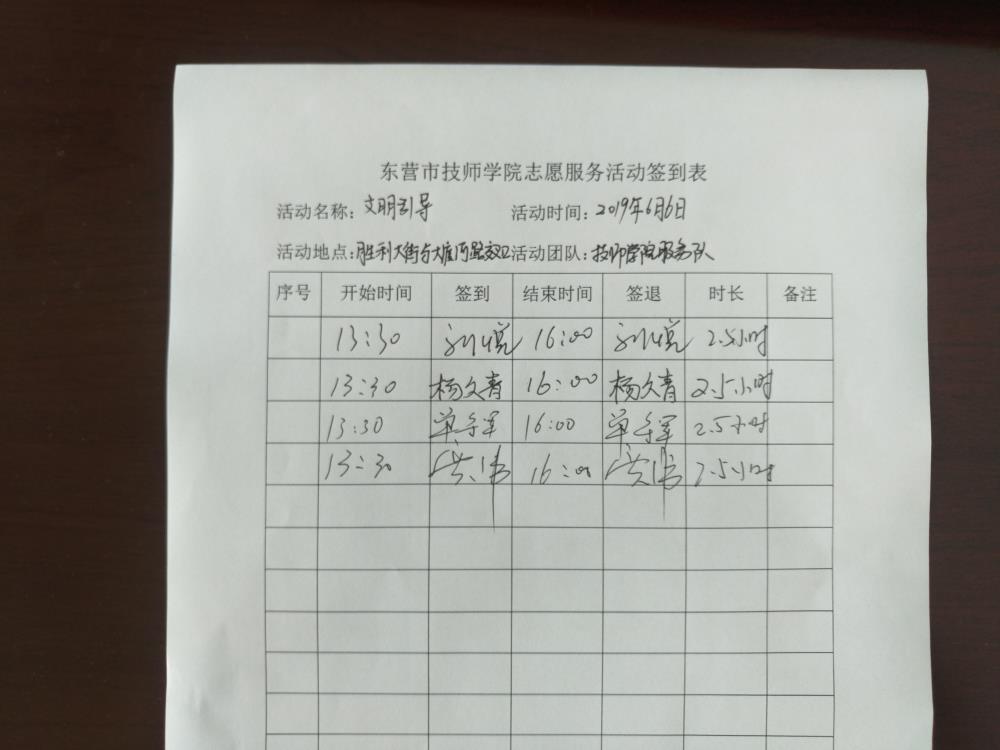 东营市技师学院志愿服务活动签到表
活动名称：文明引导 活动时间：2019年6月6日
活动地点：胜利大街与大 路 活动团队：技师学院服务队
序号 开始时间 签到 结束时间 签退 时长 备注
13:30 刘悦 16:00 刘悦 2.5小时
13:30 杨文青 16:00 杨文青 2.5小时
13:30 单 军 16:00 单 军 2.5小时
13:30 洪伟 16:00 洪伟 2.5小时